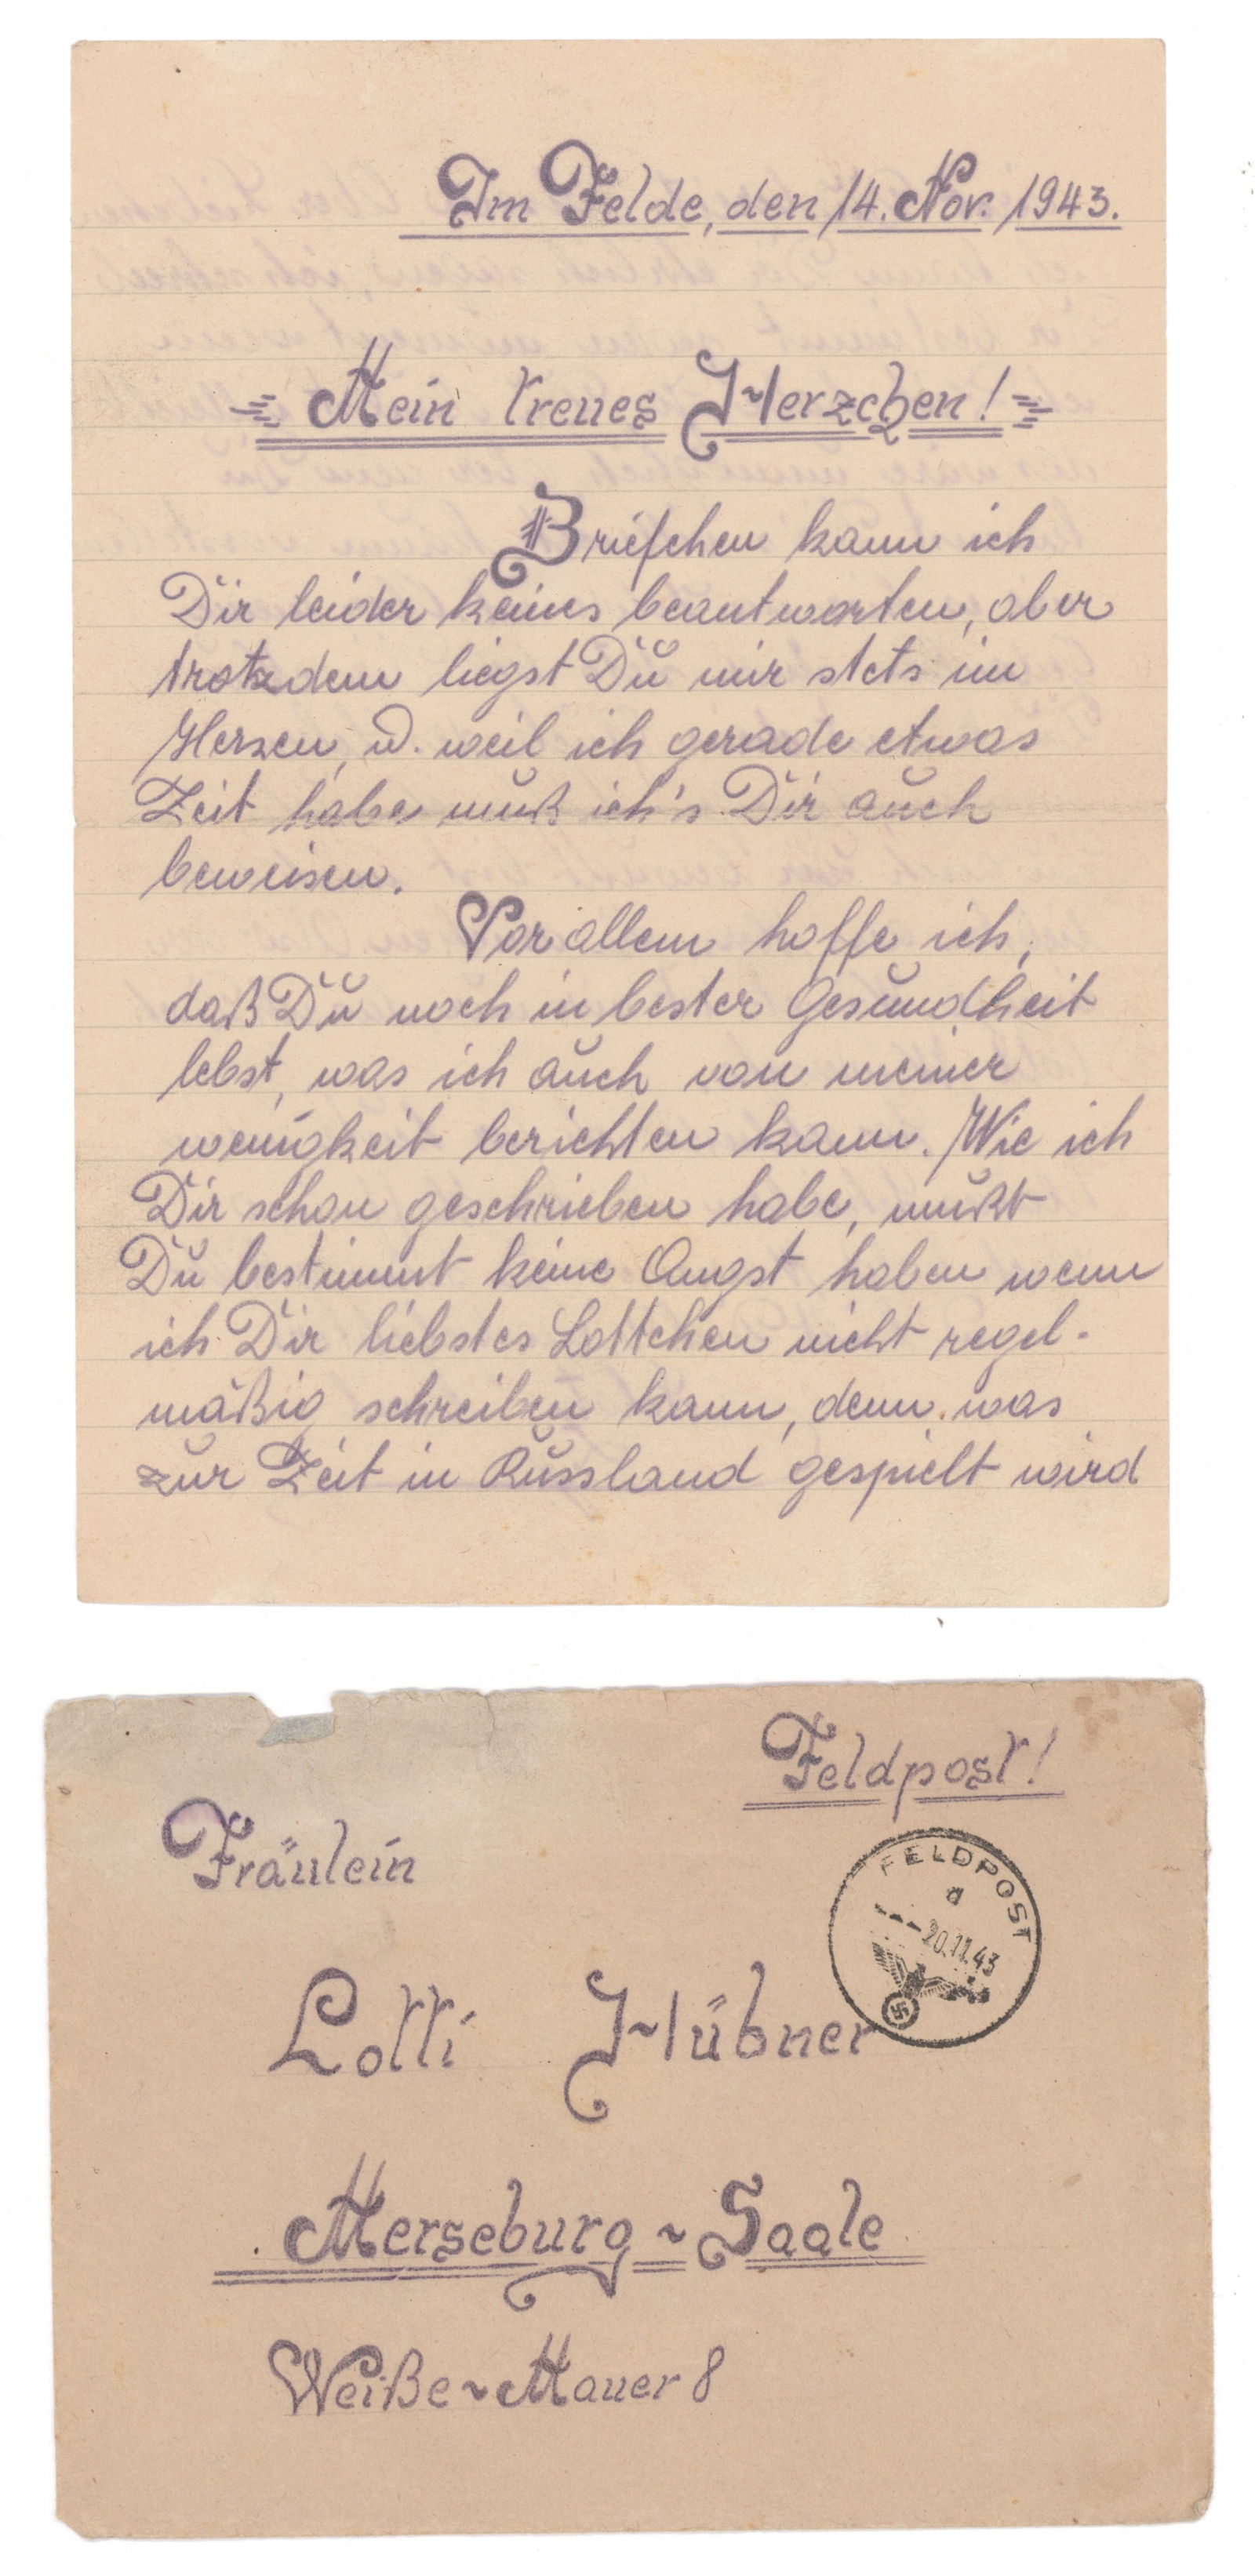 Im Felde, den 14. Nov. 1943.
Mein treues Herzchen!
Briefchen kann ich
Dir leider keines beantworten, aber
trotzdem liegst Du mir stets im
Herzen, u. weil ich gerade etwas
Zeit habe muß ich's Dir auch
beweisen.
Vor allem hoffe ich,
daß Du noch in bester Gesundheit
lebst, was ich auch von meiner
wenigkeit berichten kann. Wie ich
Dir schon geschrieben habe, mußt
Du bestimmt keine Angst haben wenn
ich Dir liebstes Lottchen nicht regel-
mäßig schreiben kann, denn was
zur Zeit in Russland gespielt wird
Feldpost!
Fräulein
FELDPOST
d
20.11.43
Lotti Hübner
Merseburg~Saale
Weiße~Mauer 8